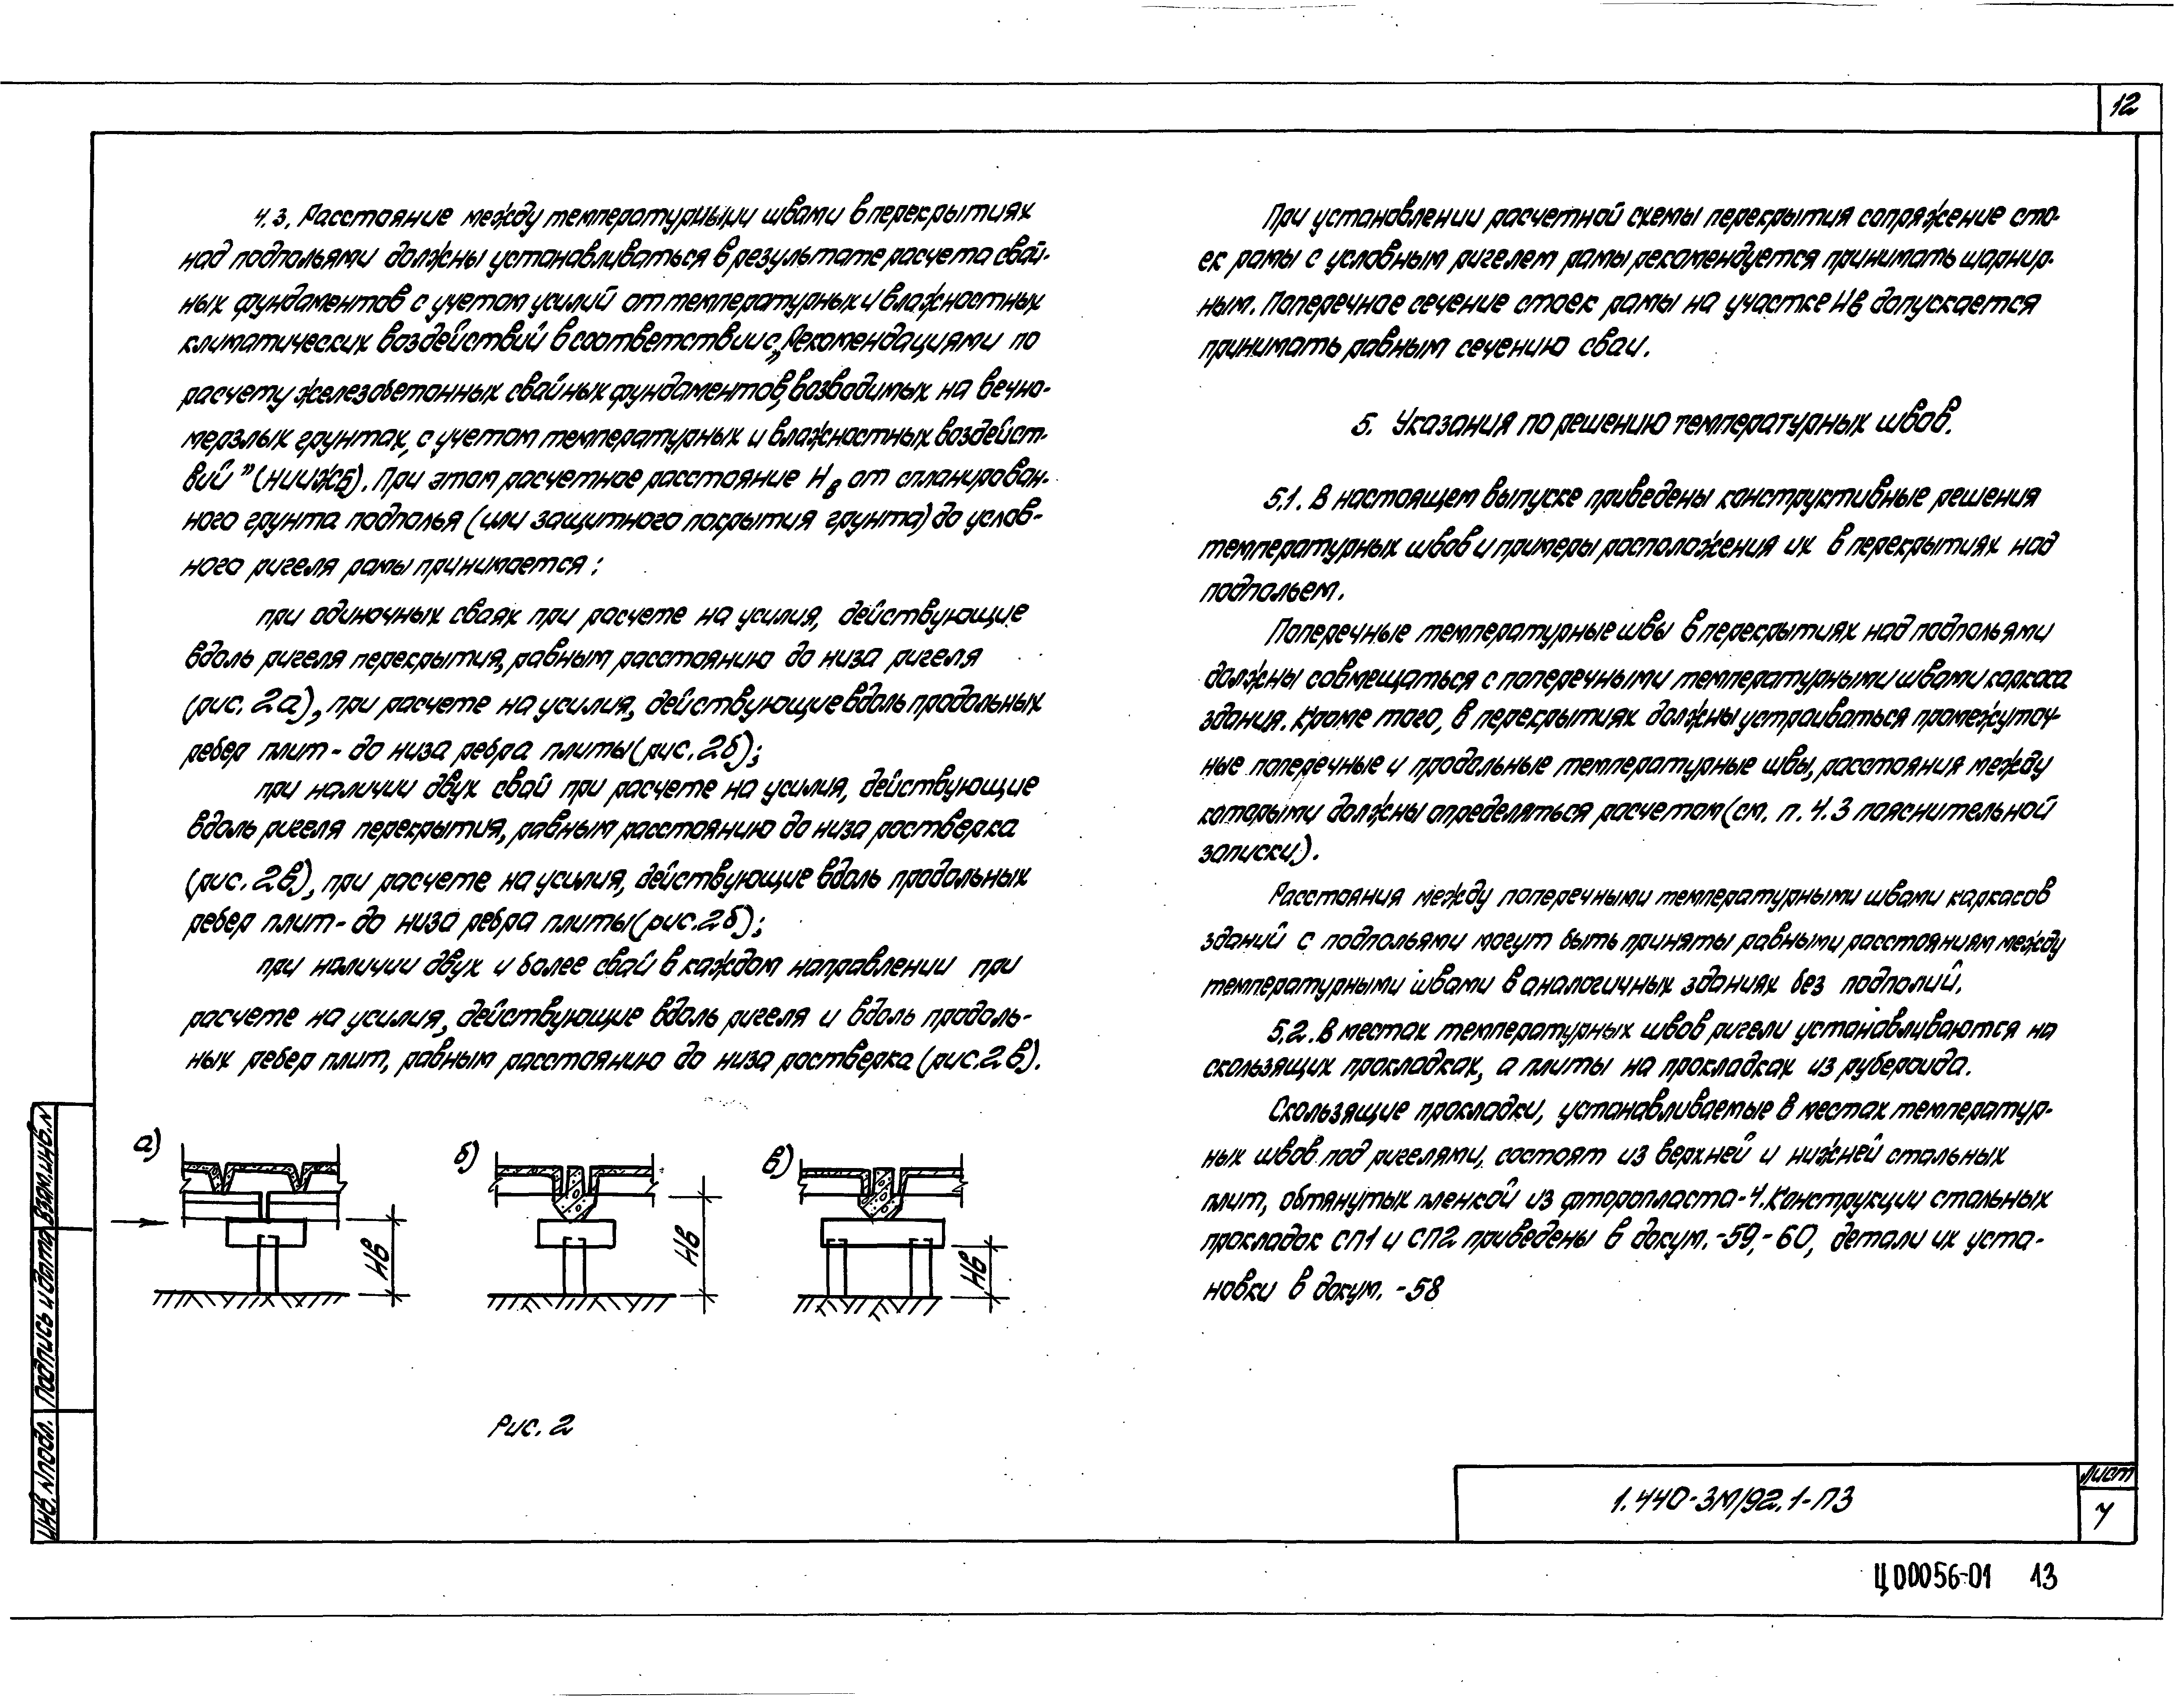 12
4.3. Расстояние между температурными швами в перекрытиях
над подпольями должны устанавливаться в результате расчета свай-
ных фундаментов с учетом усилий от температурных и влажностных
климатических воздействий в соответствии с „Рекомендациями по
расчету железобетонных свайных фундаментов, возводимых на вечно-
мерзлых грунтах, с учетом температурных и влажностных воздейст-
вий" (НИИЖБ). При этом расчетное расстояние Нв от спланирован-
ного грунта подполья (или защитного покрытия грунта) до услов-
ного ригеля рамы принимается:
при одиночных сваях при расчете на усилия, действующие
вдоль ригеля перекрытия, равным расстоянию до низа ригеля
(рис. 2а), при расчете на усилия, действующие вдоль продольных
ребер плит - до низа ребра плиты (рис. 2б);
при наличии двух свай при расчете на усилия, действующие
вдоль ригеля перекрытия, равным расстоянию до низа ростверка
(рис. 2в), при расчете на усилия, действующие вдоль продольных
ребер плит - до низа ребра плиты (рис. 2б);
при наличии двух и более свай в каждом направлении при
расчете на усилия, действующие вдоль ригеля и вдоль продоль-
ных ребер плит, равным расстоянию до низа ростверка (рис. 2в).
а)
Нв
б)
Нв
в)
Нв
Рис. 2
При установлении расчетной схемы перекрытия сопряжение сто-
ек рамы с условным ригелем рамы рекомендуется принимать шарнир-
ным. Поперечное сечение стоек рамы на участке Нв допускается
принимать равным сечению сваи.
5. Указания по решению температурных швов.
5.1. В настоящем выпуске приведены конструктивные решения
температурных швов и примеры расположения их в перекрытиях над
подпольем.
Поперечные температурные швы в перекрытиях над подпольями
должны совмещаться с поперечными температурными швами каркаса
здания. Кроме того, в перекрытиях должны устраиваться промежуточ-
ные поперечные и продольные температурные швы, расстояния между
которыми должны определяться расчетом (см. п. 4.3 пояснительной
записки).
Расстояния между поперечными температурными швами каркасов
зданий с подпольями могут быть приняты равными расстояниям между
температурными швами в аналогичных зданиях без подполий.
5.2. В местах температурных швов ригели устанавливаются на
скользящих прокладках, а плиты на прокладках из рубероида.
Скользящие прокладки, устанавливаемые в местах температур-
ных швов под ригелями, состоят из верхней и нижней стальных
плит, обтянутых пленкой из фторопласта-4. Конструкции стальных
прокладок СП1 и СП2 приведены в докум. -59, -60, детали их уста-
новки в докум. -58
Инв. N подл.
Подпись и дата
Взам. инв. N
1.440-3М/92.1-ПЗ
Лист
7
Ц00056-01 13